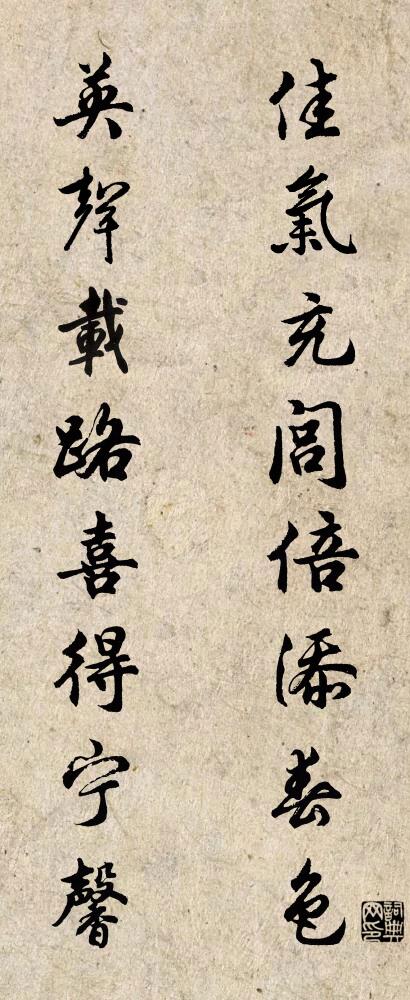 佳氣充閭倍添春色
英聲載路喜得宁馨
詞典网印